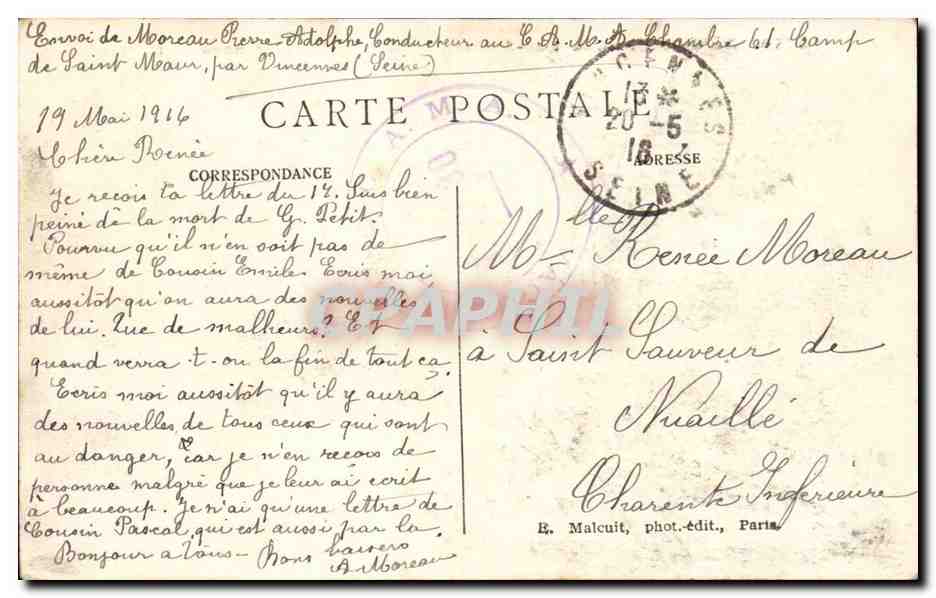 Envoi de Moreau Pierre Adolphe, Conducteur au C. A. M. A. Chambre 61, Camp
de Saint Maur, par Vincennes (Seine)
CARTE POSTALE
19 Mai 1916
Chère Renée
CORRESPONDANCE
Je reçois ta lettre du 17. Suis bien
peiné de la mort de G. Petit.
Pourvu qu'il n'en soit pas de
même de Cousin Emile. Ecris moi
aussitôt qu'on aura des nouvelles
de lui. Que de malheurs? Et
quand verra-t-on la fin de tout ça.
Ecris moi aussitôt qu'il y aura
des nouvelles, de tous ceux qui sont
au danger, car je n'en reçois de
personne malgré que je leur ai écrit
à beaucoup. Je n'ai qu'une lettre de
Cousin Pascal, qui est aussi par là.
Bonjour à tous - Bons baisers
A. Moreau
VINCENNES
13 *
20 -5
16
SEINE
A. M. A.
ADRESSE
Mlle Renée Moreau
à Saint Sauveur de
Nuaillé
Charente Inférieure
E. Malcuit, phot.-édit., Paris
CPAPHIL